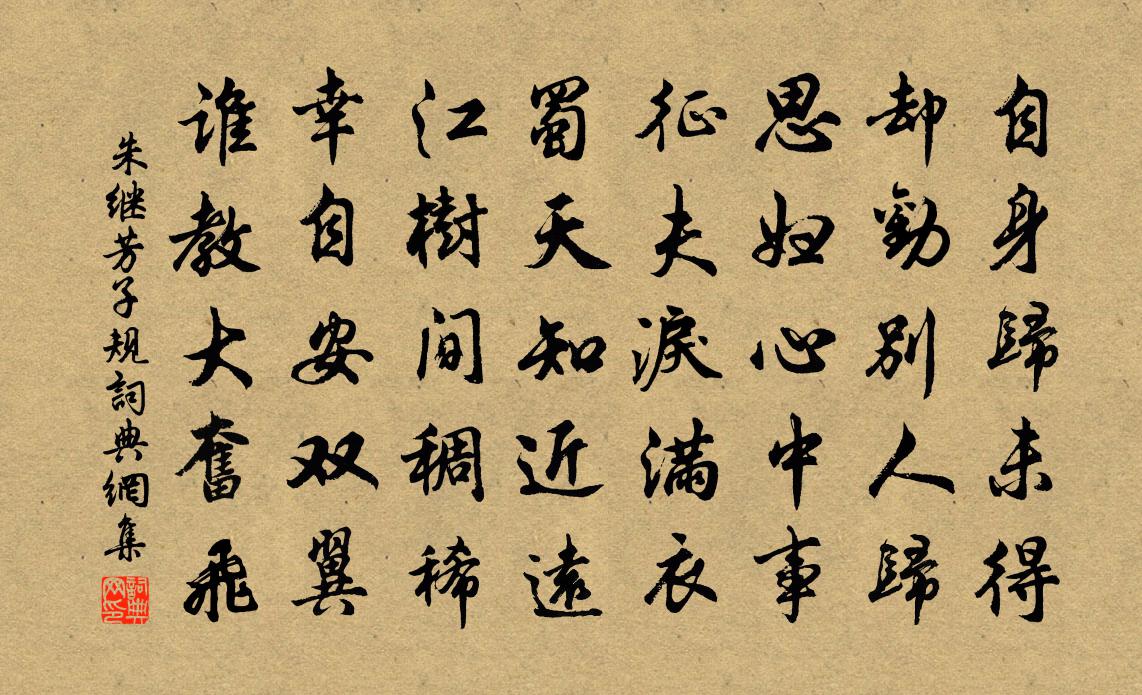 自身歸未得
却勸別人歸
思妇心中事
征夫淚满衣
蜀天知近遠
江樹间稠稀
幸自安双翼
谁教大奮飛
朱继芳子規詞典網集
詞典网印